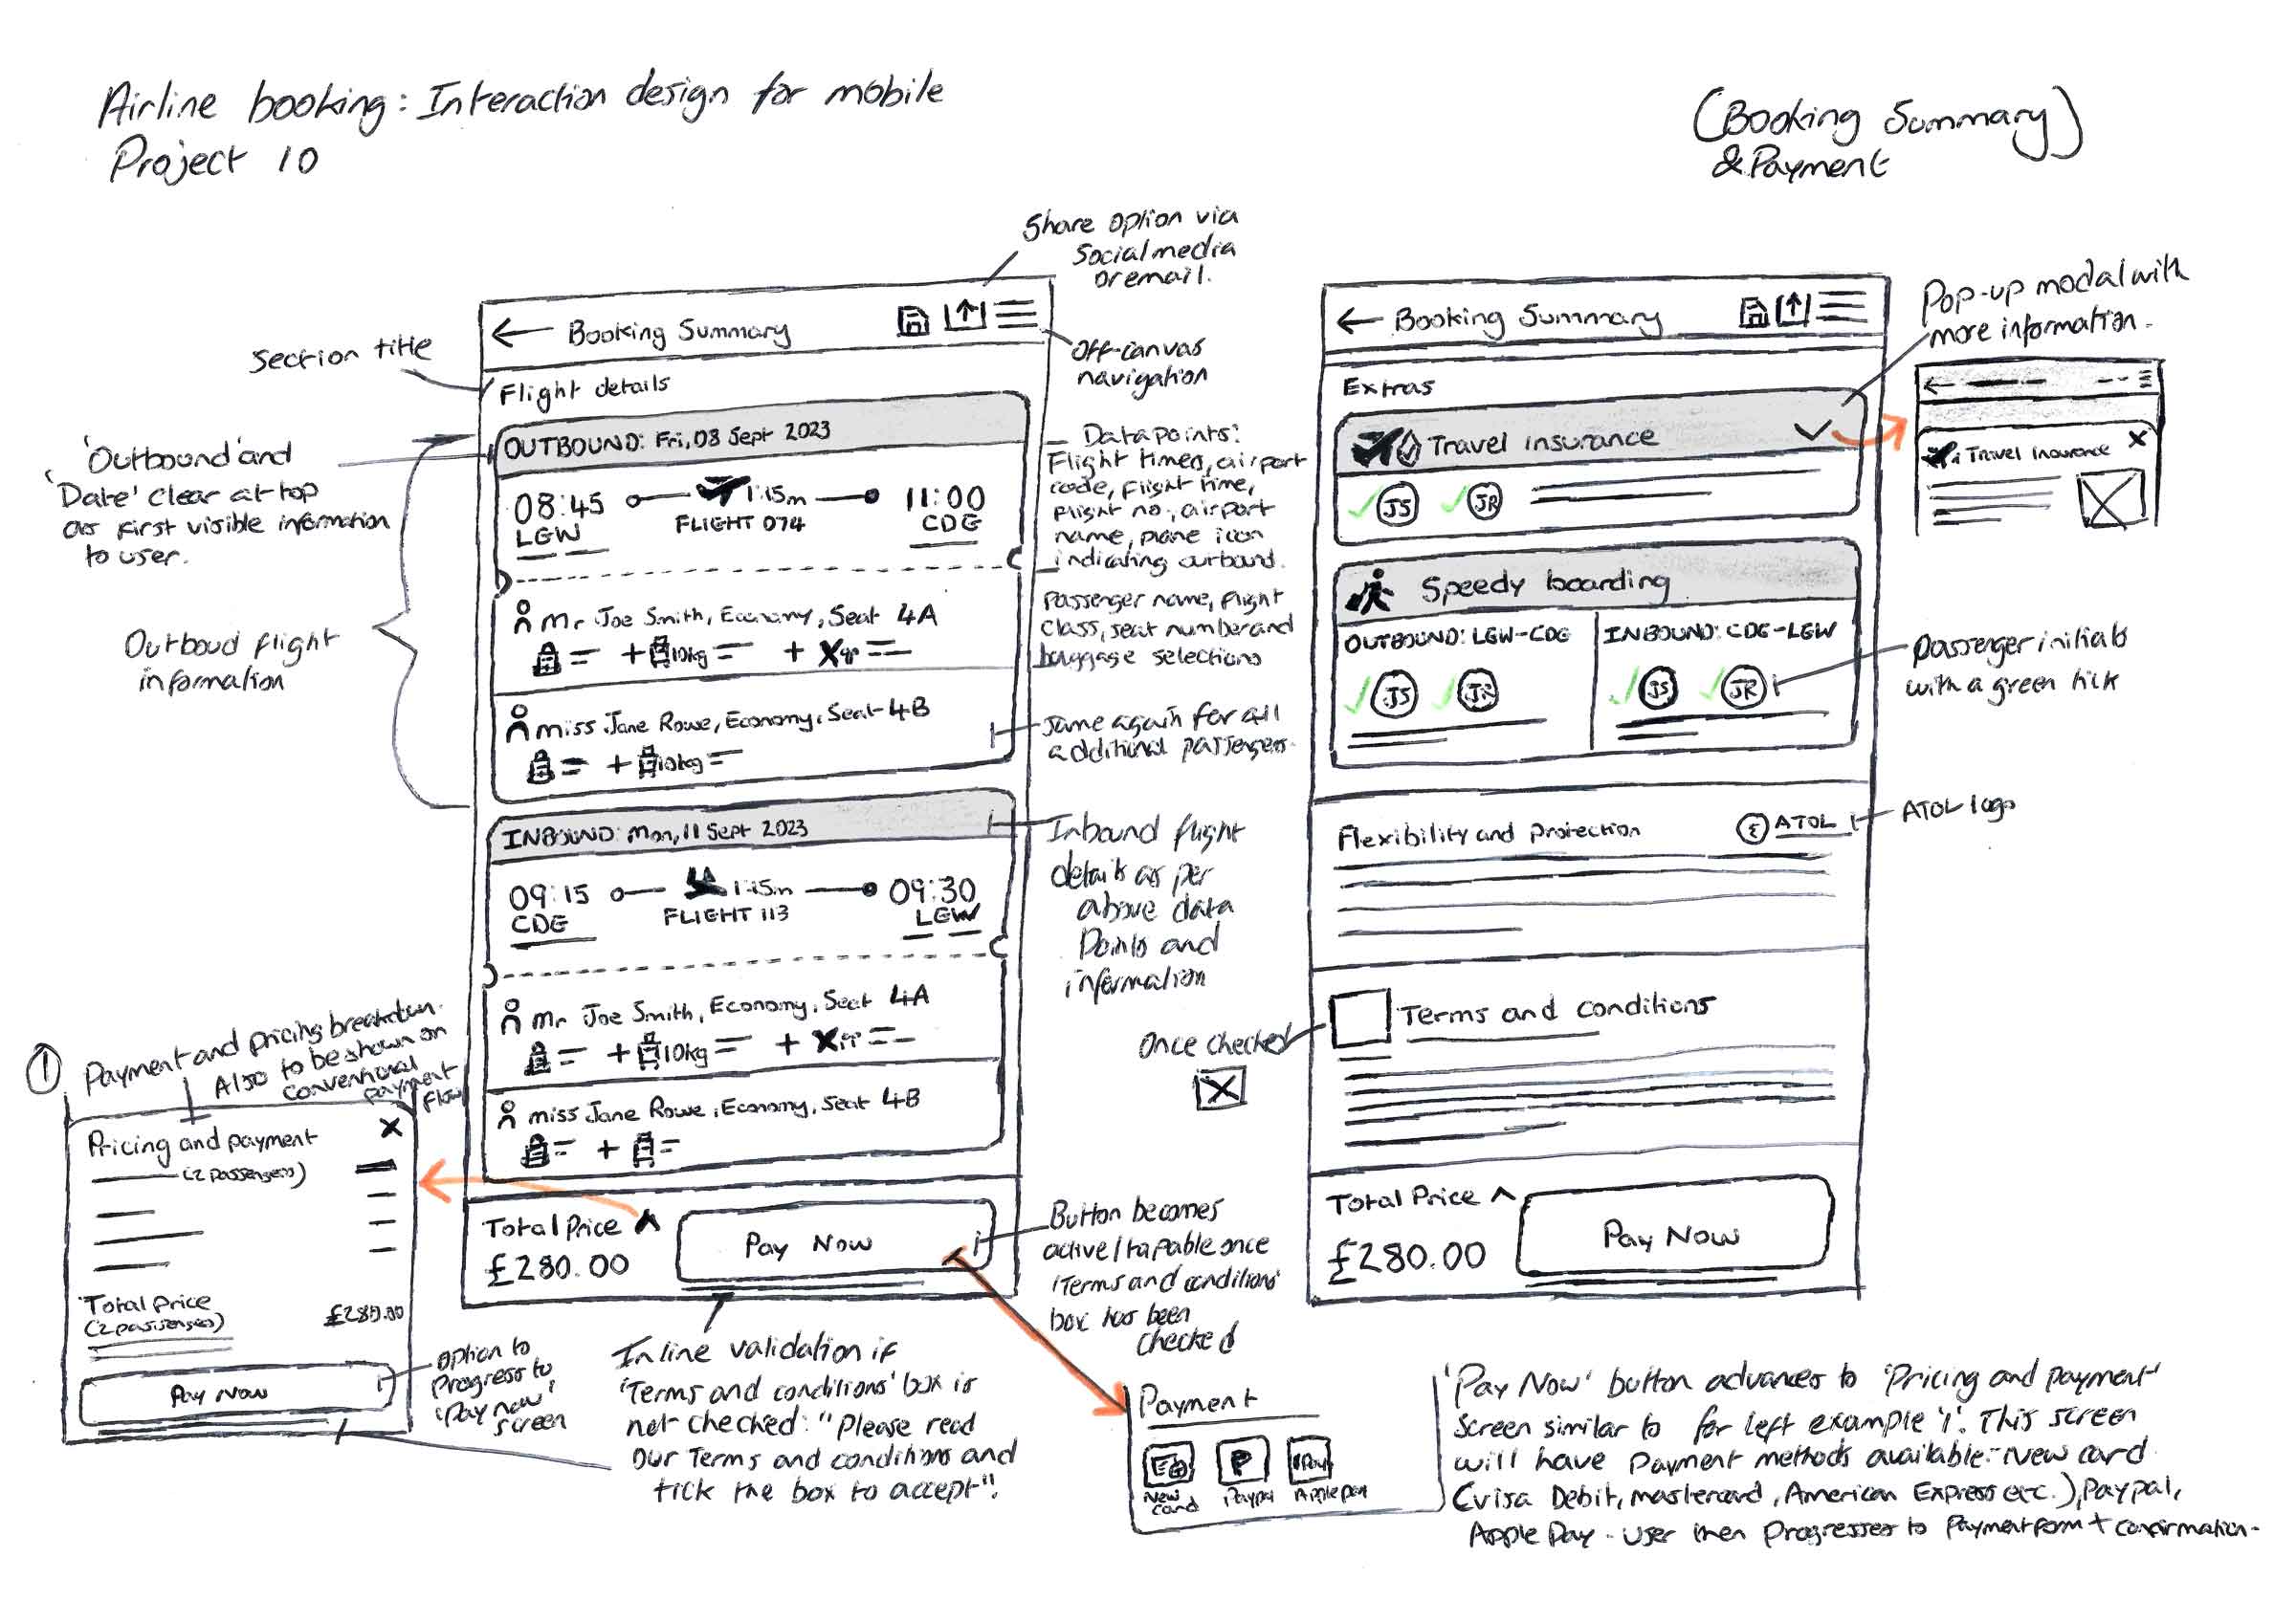 Airline booking: Interaction design for mobile
Project 10
(Booking Summary)
& Payment
Share option via
Social media
or email.
Section title
← Booking Summary
Off-canvas
navigation
Flight details
'Outbound' and
'Date' clear at top
as first visible information
to user.
Outboud flight
information
OUTBOUND: Fri, 08 Sept 2023
08:45
1:15m
11:00
LGW
FLIGHT 074
CDG
Mr Joe Smith, Economy, Seat 4A
+ 10kg +
Miss Jane Rowe, Economy, Seat 4B
+ 10kg
Data points:
Flight times, airport
code, flight time,
flight no, airport
name, plane icon
indicating outbound.
Passenger name, flight
class, seat number and
baggage selections
Same again for all
additional passengers.
INBOUND: Mon, 11 Sept 2023
09:15
1:15m
09:30
CDG
FLIGHT 113
LGW
Mr Joe Smith, Economy, Seat 4A
+ 10kg +
Miss Jane Rowe, Economy, Seat 4B
+
Inbound flight
details as per
above data
Points and
information
Total Price ^
£280.00
Pay Now
Button becomes
active/tapable once
'Terms and conditions'
box has been
checked
Inline validation if
'Terms and conditions' box is
not checked: "Please read
Our Terms and conditions and
tick the box to accept".
① Payment and pricing breakdown.
Also to be shown on
conventional
payment
flow
Pricing and payment X
(2 passengers)
Total Price
(2 passengers)
£280.00
Pay Now
Option to
Progress to
'Pay now'
screen
← Booking Summary
Extras
Travel insurance
JS JR
Speedy boarding
OUTBOUND: LGW-CDG
INBOUND: CDG-LGW
JS JR
JS JR
Pop-up modal with
more information.
Travel Insurance X
Passenger initials
with a green tick
Flexibility and protection
ATOL
ATOL logo
Once checked
Terms and conditions
Total Price ^
£280.00
Pay Now
Payment
New
card
Paypal
Apple pay
P
Pay
'Pay Now' button advances to 'Pricing and payment'
Screen similar to far left example '1'. This screen
will have Payment methods available:- New card
(Visa Debit, mastercard, American Express etc.), Paypal,
Apple Pay - User then Progresses to Payment form + confirmation.